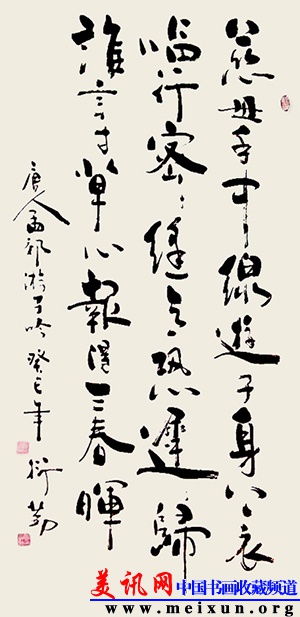 慈母手中線遊子身上衣
臨行密〻縫意恐遲〻歸
誰言寸草心報得三春暉
唐人孟郊游子吟 癸巳年 衍勤
美讯网 中国书画收藏频道
www.meixun.org